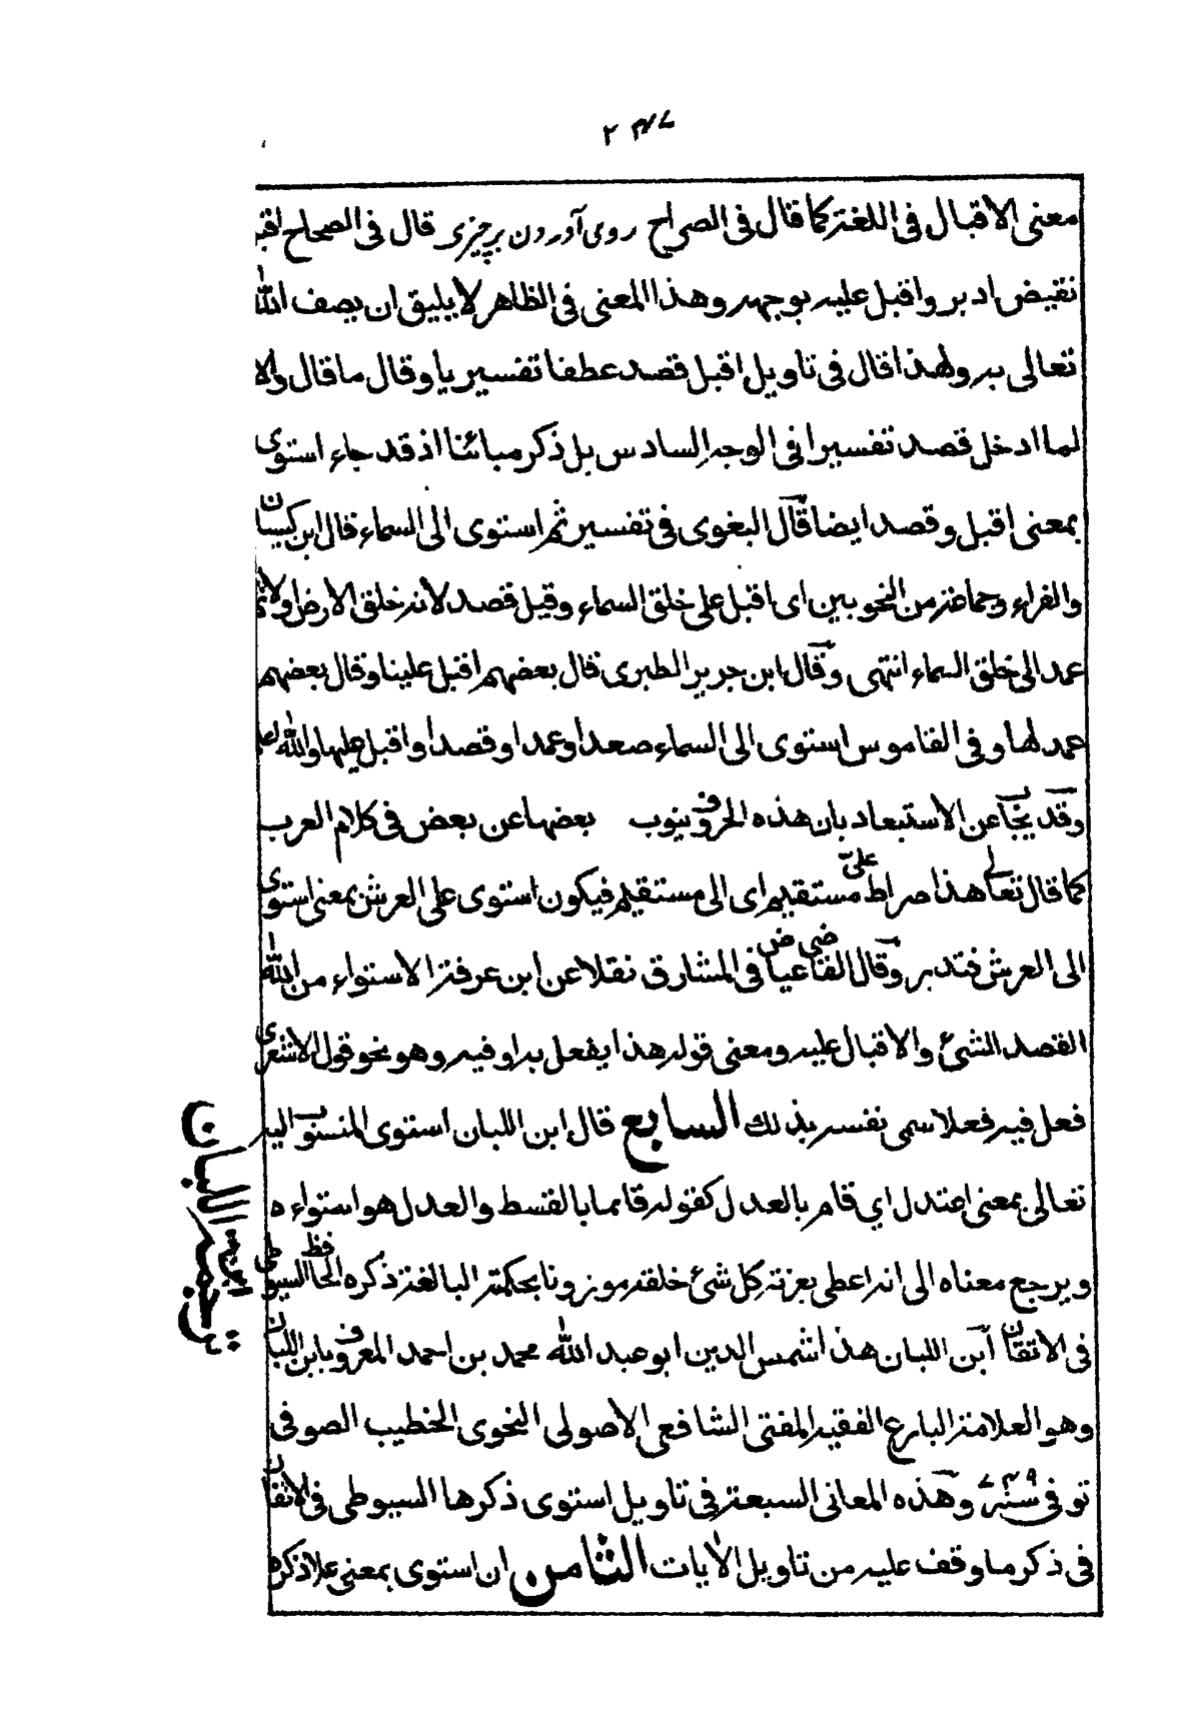 معنى الاقبال فى اللغة كما قال فى الصراح روى آوردن برچيزى قال فى الصحاح اقبل
نقيض ادبر واقبل عليه بوجهه وهذا المعنى فى الظاهر لا يليق ان يصف الله
تعالى به ولهذا قال فى تاويل اقبل قصد عطفا تفسيريا وقال ما قال والا
لما ادخل قصد تفسيرا فى الوجه السادس بل ذكر مبائنا اذ قد جاء استوى
بمعنى اقبل وقصد ايضا قال البغوى فى تفسير ثم استوى الى السماء قال ابن كيسان
والفراء وجماعة من النحويين اى اقبل على خلق السماء وقيل قصد لانه خلق الارض اولا ثم
عمد الى خلق السماء انتهى وقال ابن جرير الطبرى قال بعضهم اقبل علينا وقال بعضهم
عمد لها وفى القاموس استوى الى السماء صعد او عمد او قصد او اقبل عليها والله اعلم
وقد يجاب عن الاستبعاد بان هذه الحروف ينوب بعضها عن بعض فى كلام العرب
كما قال تعالى هذا صراط علىّ مستقيم اى الى مستقيم فيكون استوى على العرش بمعنى استوى
الى العرش فتدبر وقال القاضى عياض فى المشارق نقلا عن ابن عرفة الاستواء من الله
القصد الشئ والاقبال عليه ومعنى قوله هذا يفعل به او فيه وهو نحو قول الاشعرى
فعل فيه فعلا سمى نفسه بذلك السابع قال ابن اللبان استوى المنسوب اليه
تعالى بمعنى اعتدل اي قام بالعدل كقوله قائما بالقسط والعدل هو استواءه
ويرجع معناه الى انه اعطى بعزته كل شئ خلقه موزونا بحكمته البالغة ذكره الحافظ السيوطى
فى الاتقان ابن اللبان هذا شمس الدين ابو عبد الله محمد بن احمد المعروف بابن اللبان
وهو العلامة البارع الفقيه المفتى الشافعى الاصولى النحوى الخطيب الصوفى
توفى سنة ٧٤٩ وهذه المعانى السبعة فى تاويل استوى ذكرها السيوطى فى الاتقان
فى ذكر ما وقف عليه من تاويل الايات الثامن ان استوى بمعنى علا ذكره
ترجمة ابن اللبان